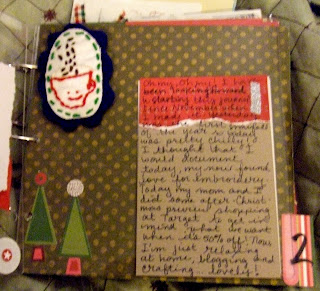 Oh my, Oh my! I have
been looking forward
to starting this journal
since November when
I made
first snowfall
of the year & today
was pretty chilly! So
I thought that I
would document
today, my new found
love for embroidery.
Today my mom and I
did some after Christ-
mas preview shopping
at Target to get in
mind what we want
when it's 50% off! Now
I'm just relaxing
at home, blogging and
crafting... lovely!
2